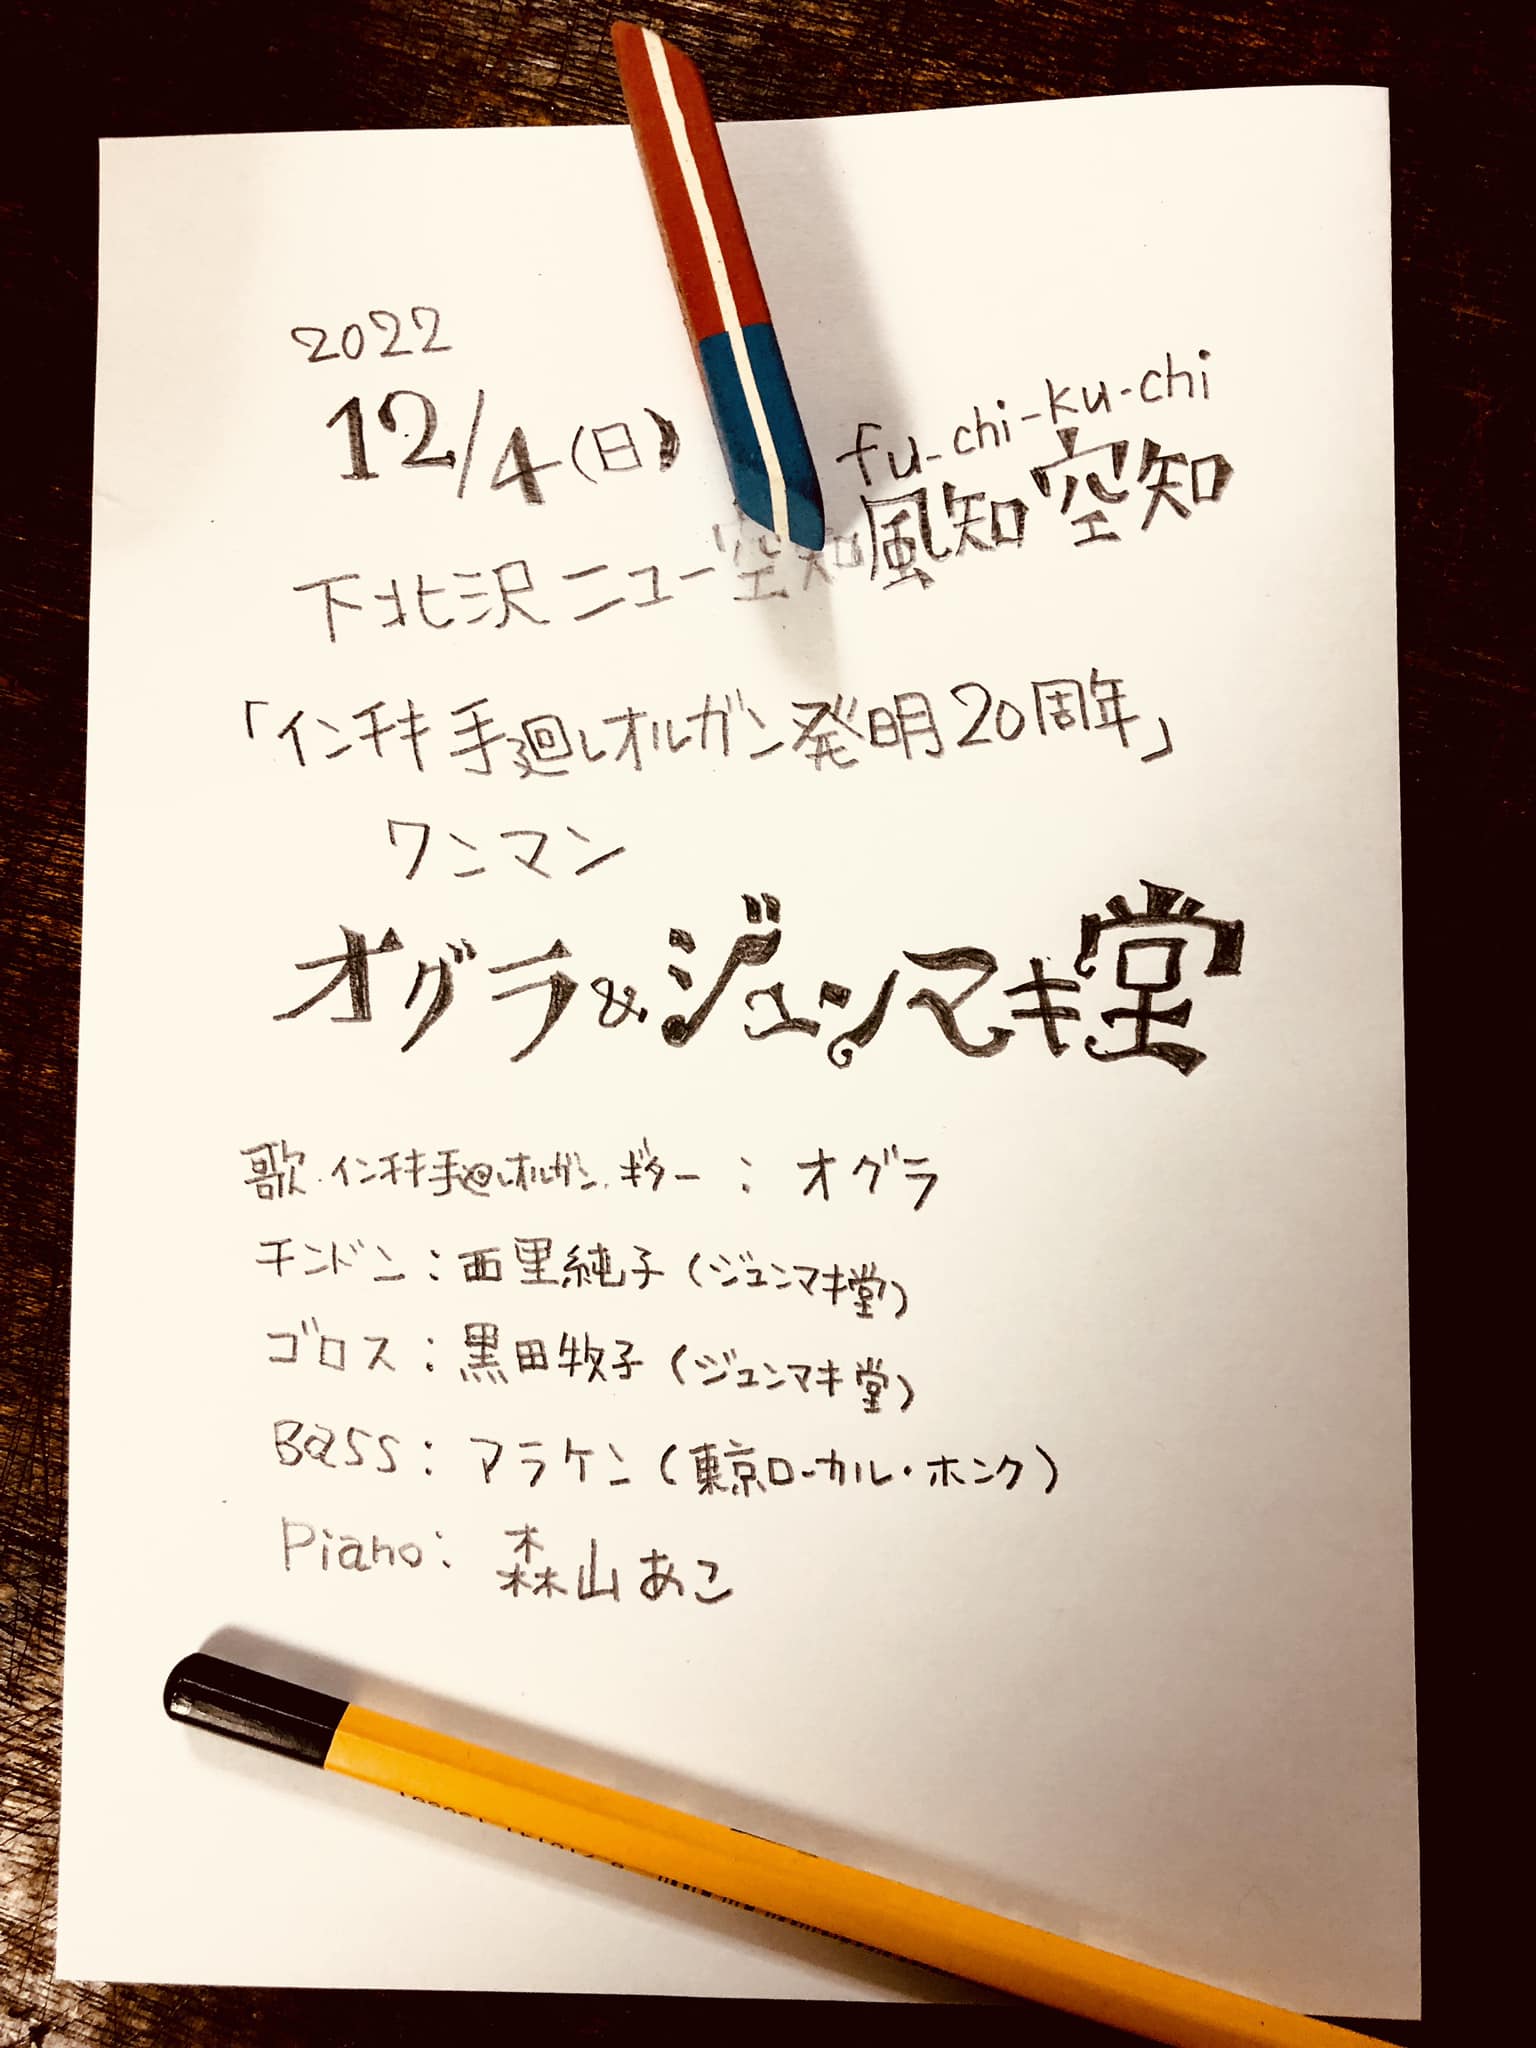 2022
12/4(日)
fu-chi-ku-chi
下北沢 ニュー 風知空知
「インチキ手廻しオルガン発明20周年」
ワンマン
オグラ&ジュンマキ堂
歌.インチキ手廻しオルガン.ギター:オグラ
チンドン:西里純子(ジュンマキ堂)
ゴロス:黒田牧子(ジュンマキ堂)
Bass:アラケン(東京ローカル・ホンク)
Piano:森山あこ